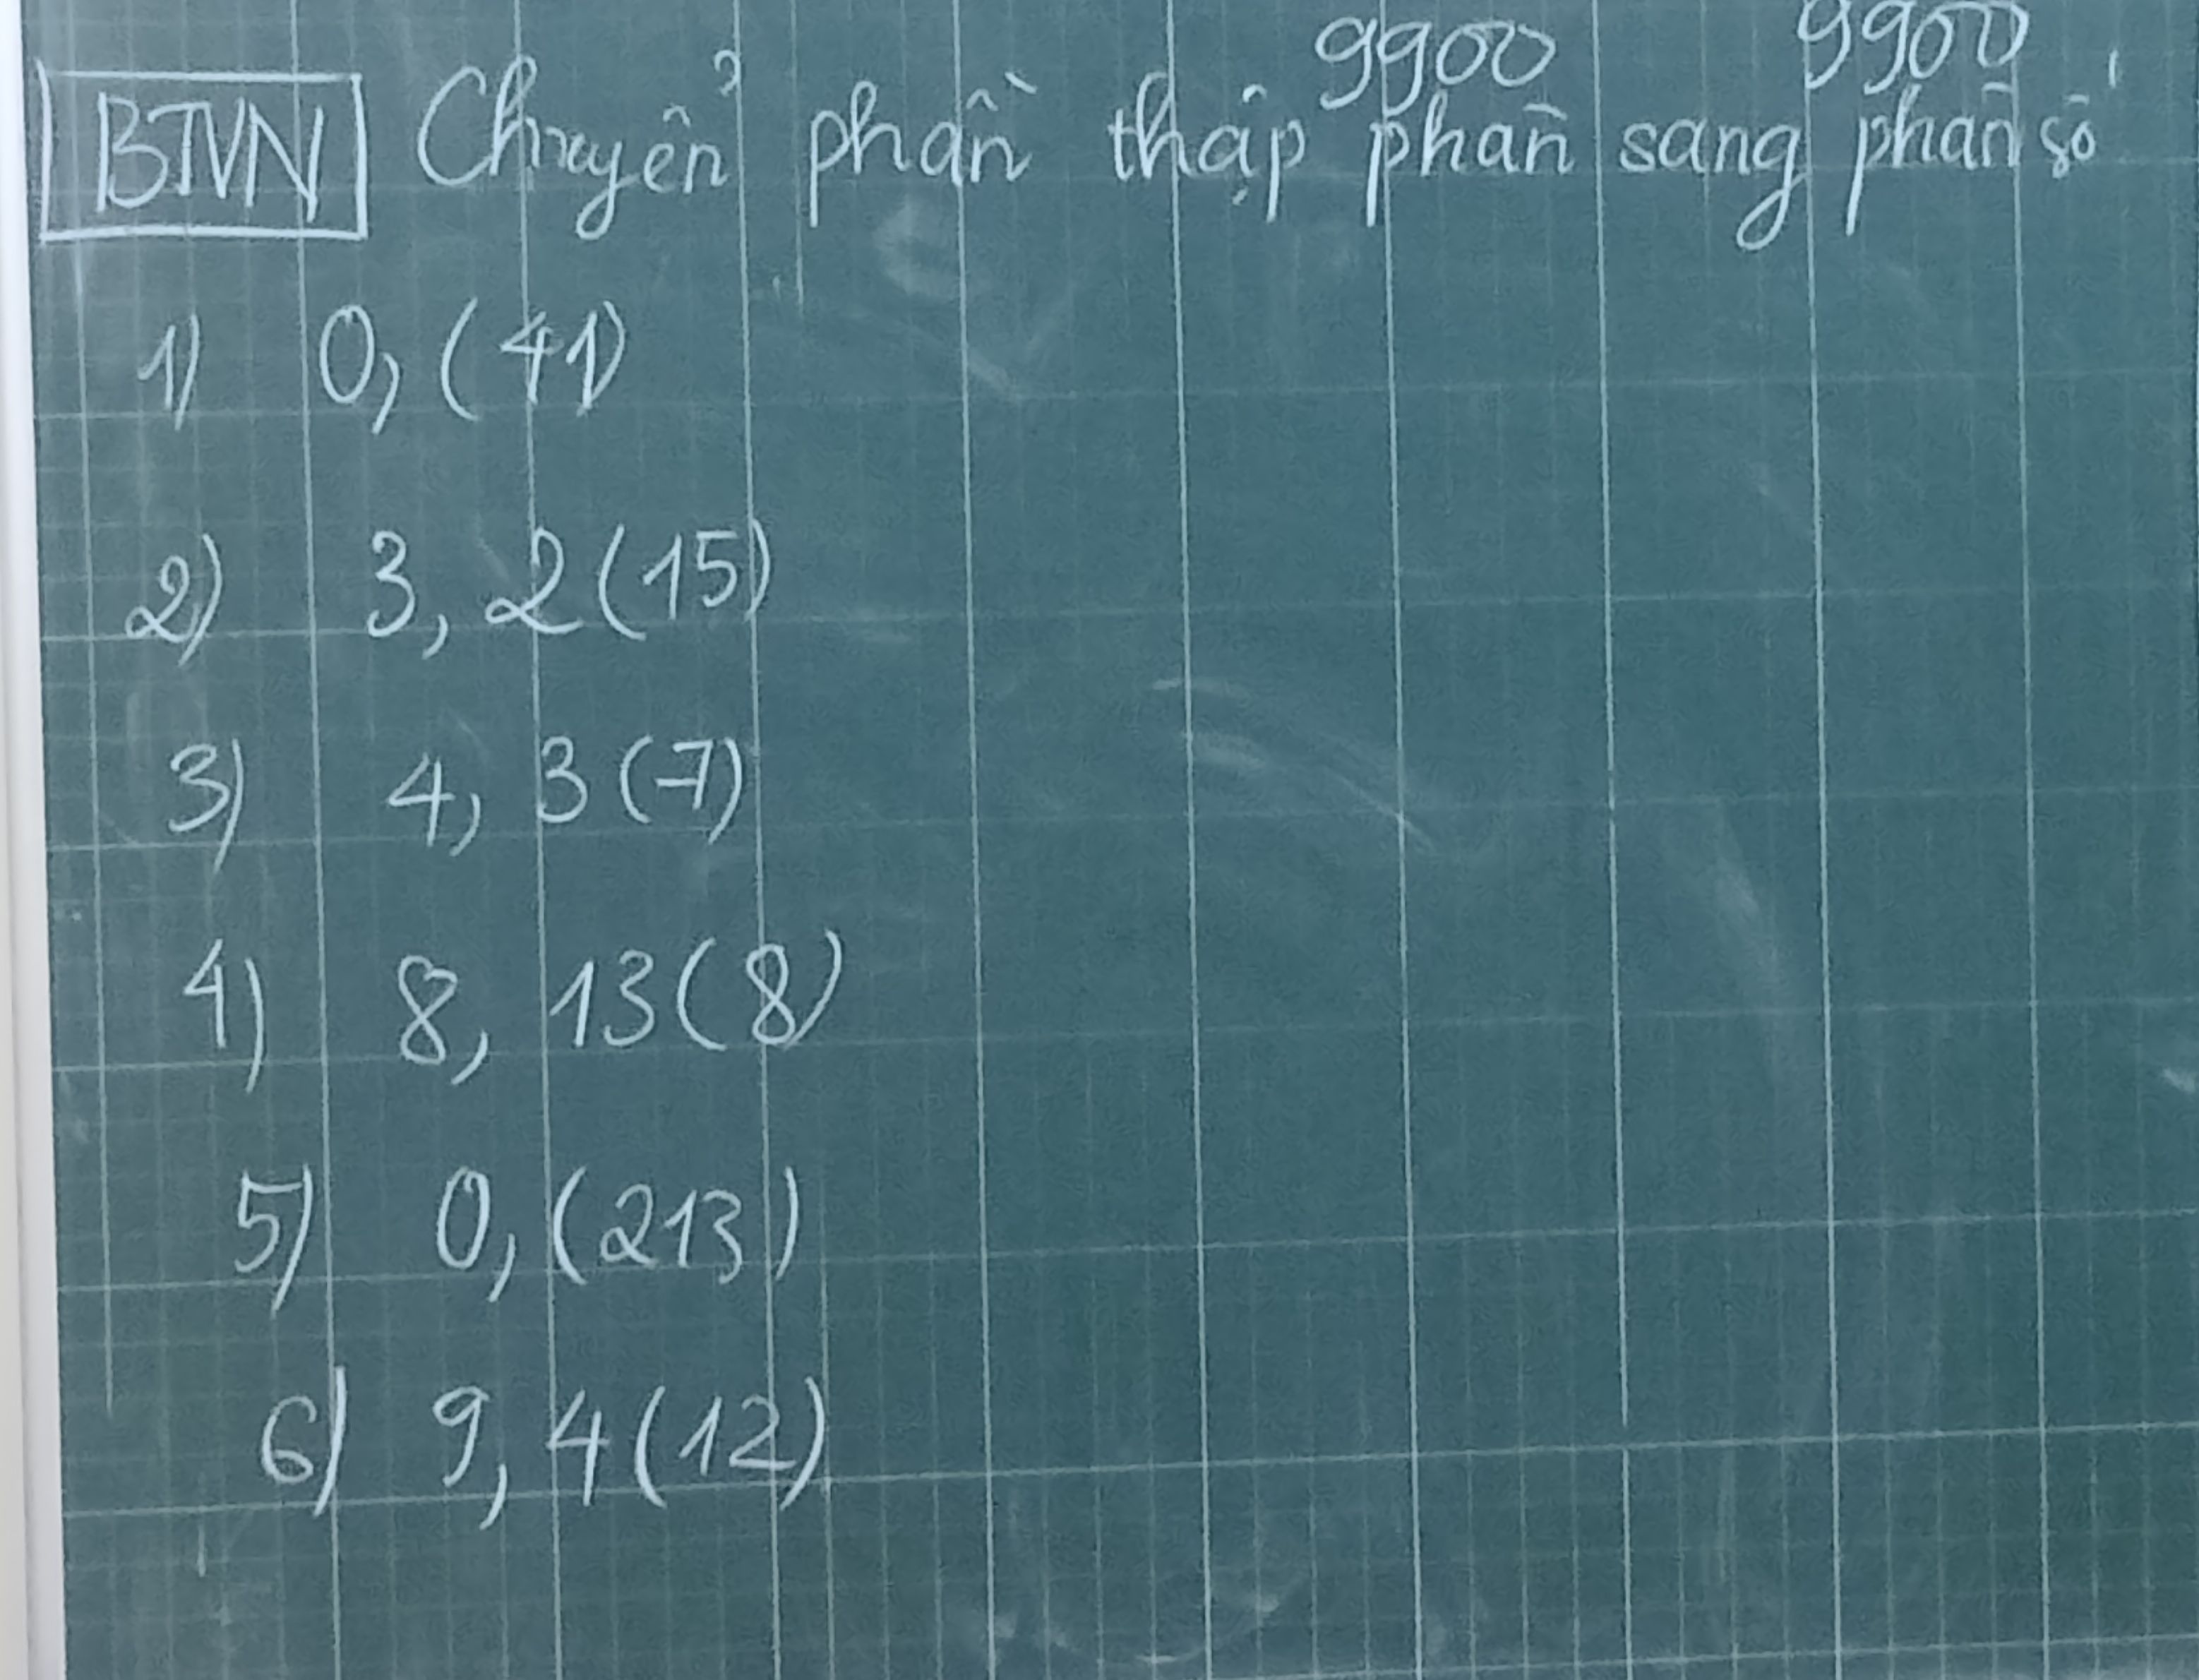 9900 9900
BTVN Chuyển phần thập phân sang phân số
1) 0,(41)
2) 3,2(15)
3) 4,3(7)
4) 8,13(8)
5) 0,(213)
6) 9,4(12)